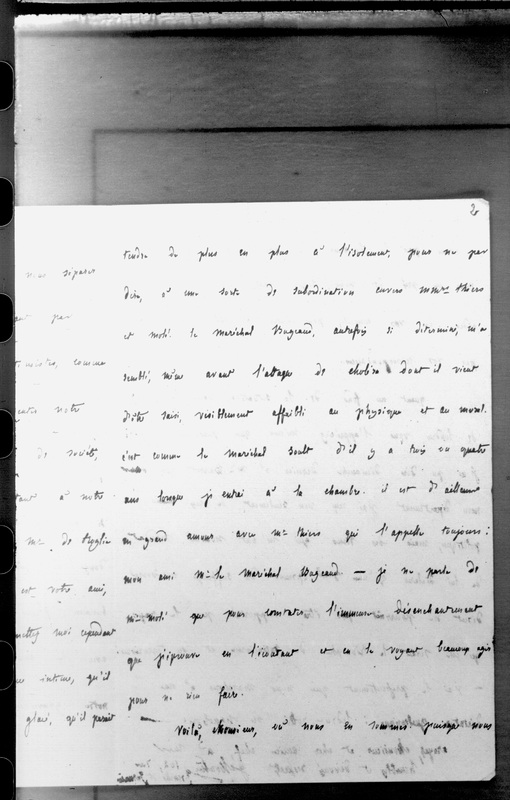 2
tendre de plus en plus à l'isolement, pour ne pas
dire, à une sorte de subordination envers mmrs thiers
et molé. le maréchal Bugeaud, autrefois si déterminé, m'a
semblé, même avant l'attaque de choléra dont il vient
d'être saisi, visiblement affaibli au physique et au moral.
c'est comme le maréchal Soult d'il y a trois ou quatre
ans lorsque j'entrai à la chambre. il est d'ailleurs
en grand amour avec mr thiers qui l'appelle toujours:
mon ami mr le maréchal Bugeaud — je ne parle de
mr molé que pour constater l'immense désenchantement
que j'éprouve en l'écoutant et en le voyant beaucoup agir
pour ne rien faire.
Voilà, Monsieur, où nous en sommes puisque vous
nous séparer
par
comme
notre
de société,
à notre
mr de
est votre ami,
moi cependant
intime, qu'il
glacé, qu'il paraît